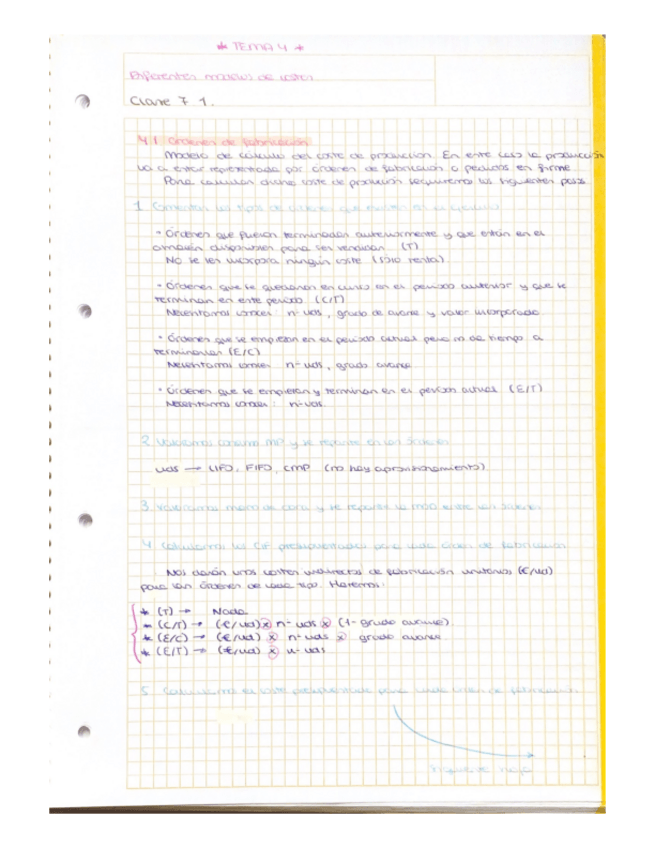 * TEMA 4 *
Diferentes modelos de costes
Clase 7 1.
4.1 Órdenes de fabricación
Modelo de cálculo del coste de producción. En este caso la producción
va a estar representada por órdenes de fabricación o pedidos en firme
Para calcular dicho coste de producción seguiremos los siguientes pasos
1. Comentar los tipos de órdenes que existen en el ejercicio
- Órdenes que fueron terminadas anteriormente y que están en el
almacén disponibles para ser vendidas (T)
No se les incorpora ningún coste (solo renta)
- Órdenes que se quedaron en curso en el periodo anterior y que se
terminan en este periodo. (C/T)
Necesitamos conocer: nº uds, grado de avance y valor incorporado.
- Órdenes que se empiezan en el periodo actual pero no da tiempo a
terminarlas (E/C)
Necesitamos conocer nº uds, grado avance
- Órdenes que se empiezan y terminan en el periodo actual (E/T)
Necesitamos conocer: nº uds.
2. Valoramos consumo MP y se reparte en las órdenes
uds → LIFO, FIFO, CMP (no hay aprovisionamiento)
3. Valoramos mano de obra y se reparte la MOD entre las órdenes
4. Calculamos los CIF presupuestados para cada orden de fabricación
Nos darán unos costes indirectos de fabricación unitarios (€/ud)
para las órdenes de cada tipo. Haremos:
* (T) → Nada.
* (C/T) → (€/ud) x nº uds x (1 - grado avance)
* (E/C) → (€/ud) x nº uds x grado avance
* (E/T) → (€/ud) x nº uds
5. Calculamos el coste presupuestado para cada orden de fabricación